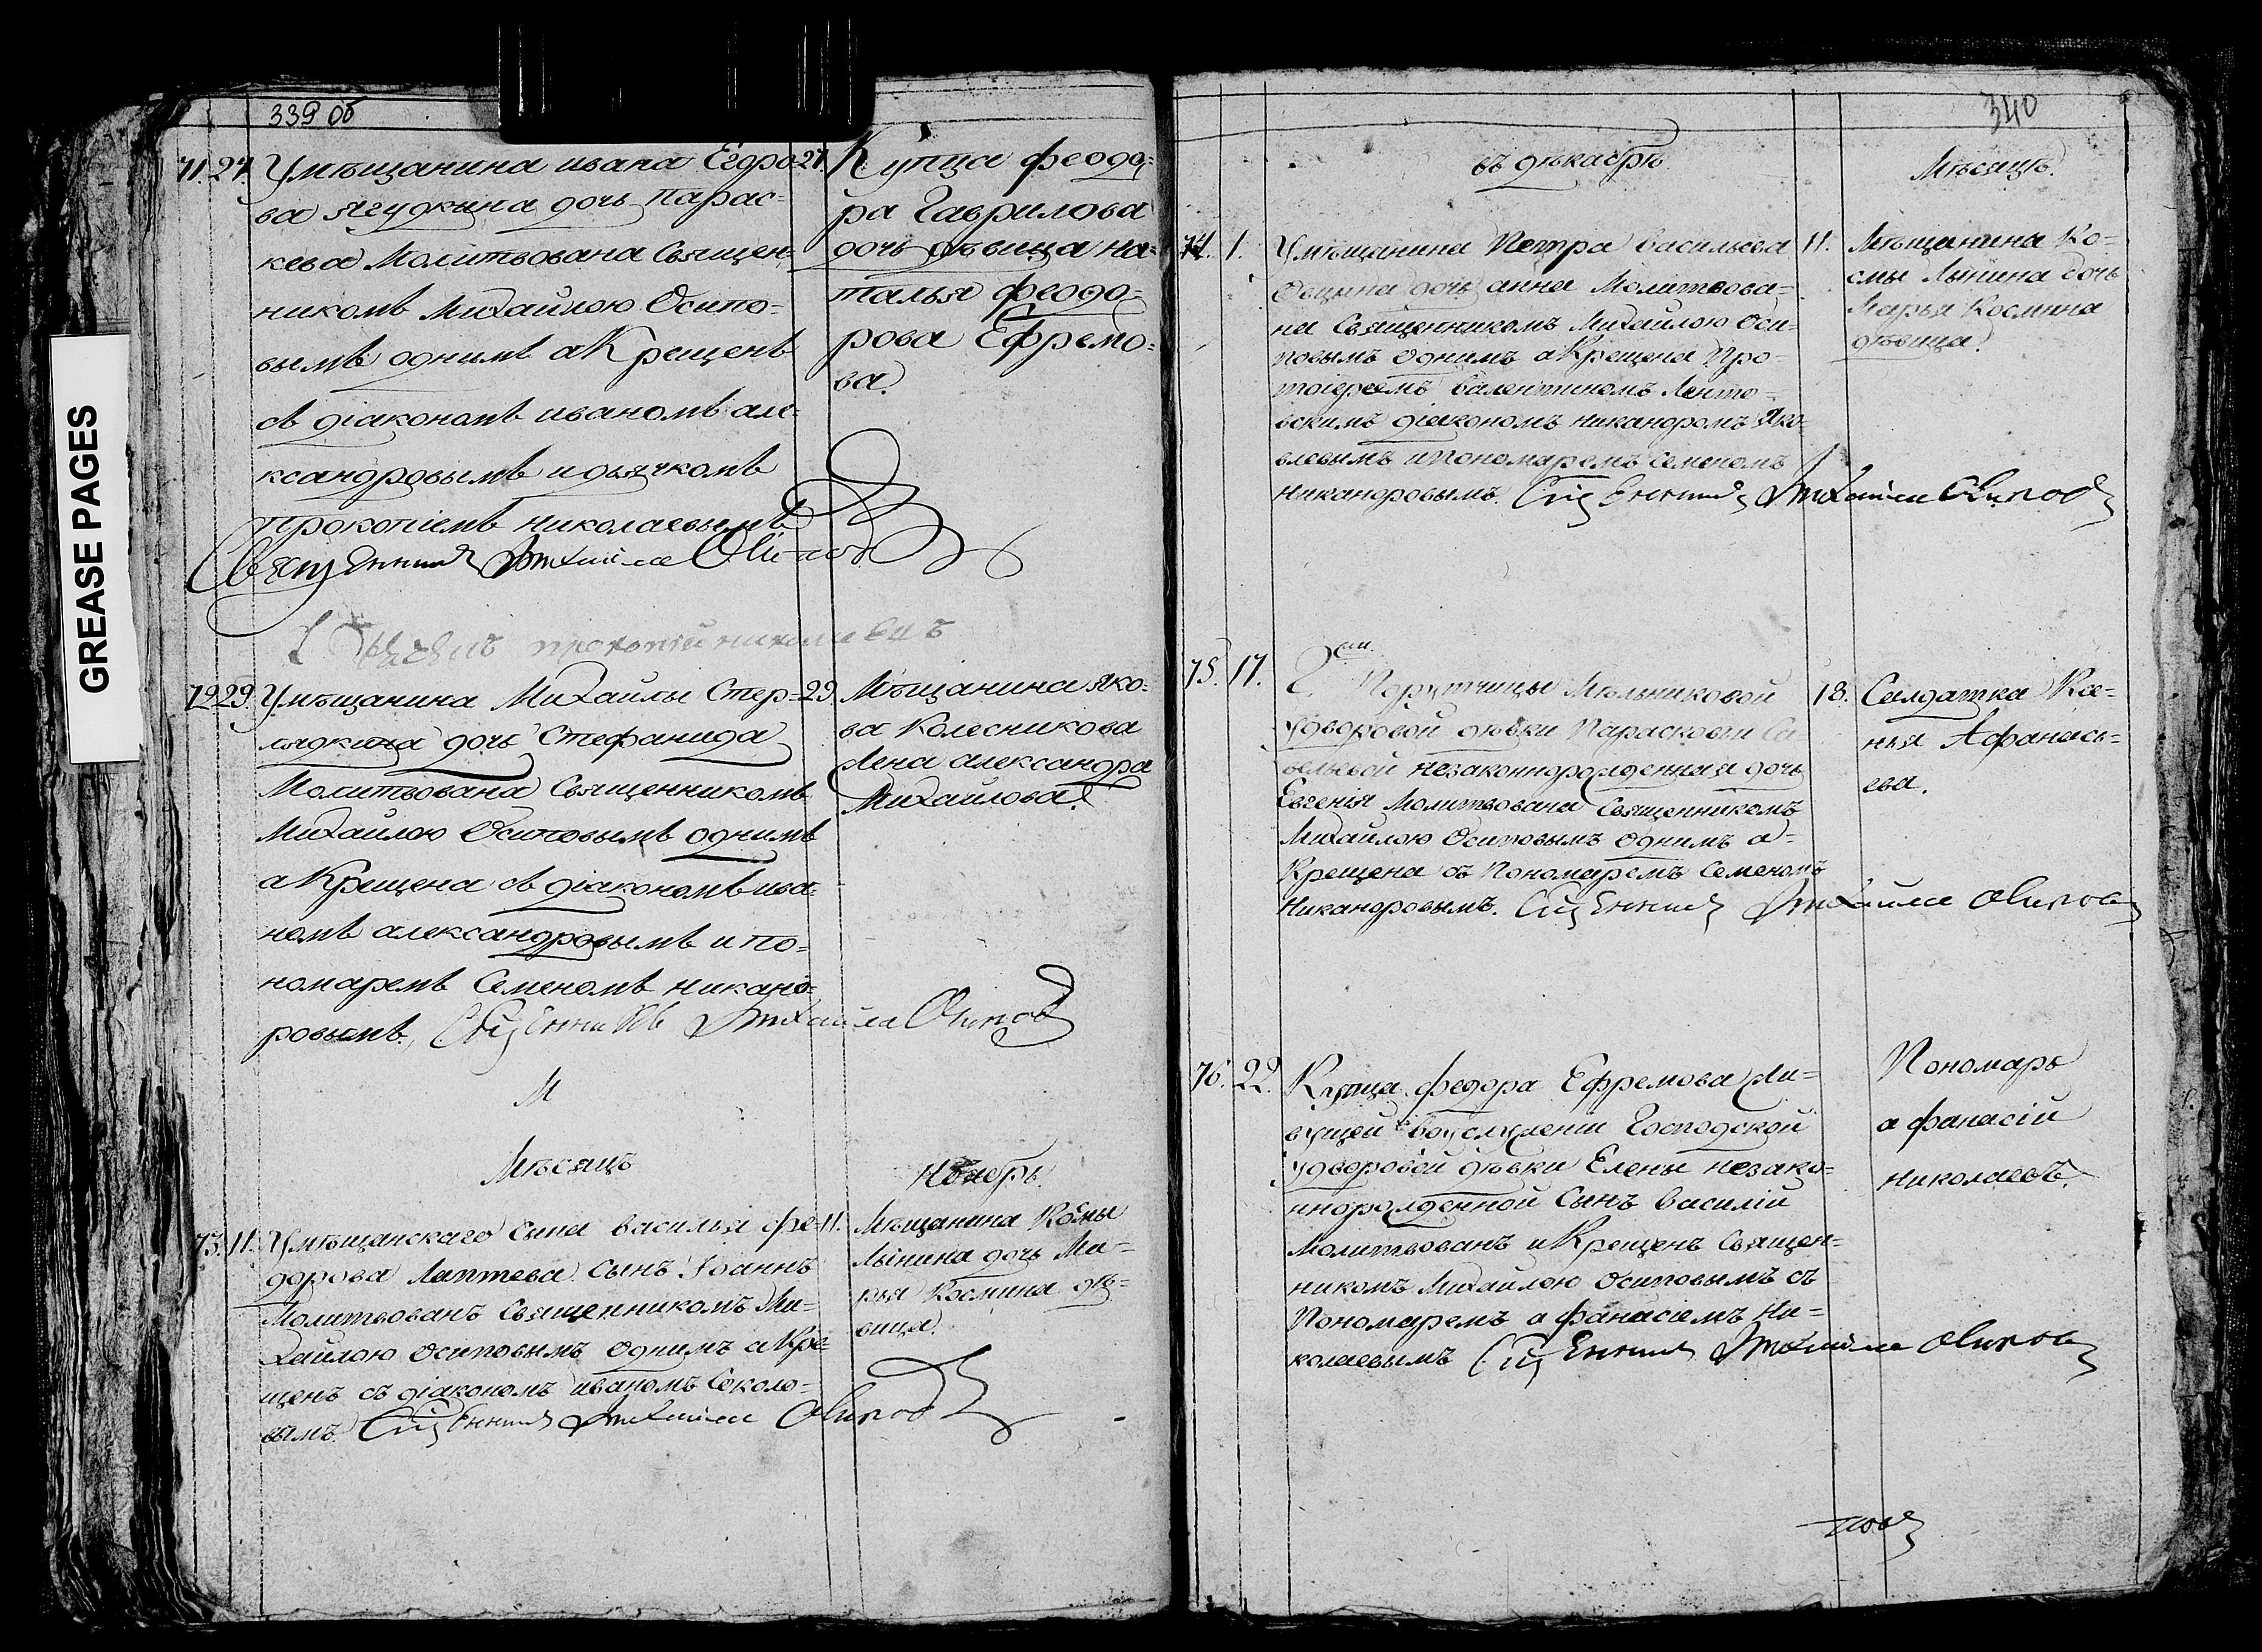 GREASE PAGES
339 об
71. 27. Умѣщанина ивана Егоро-
ва Ягудкина дочь Парас-
кева Молитвована Священ-
никомъ Михайлою Осипо-
вымъ однимъ а Крещенъ
съ діакономъ иваномъ але-
ксандровымъ и дьячкомъ
Прокопіемъ николаевымъ
Священникъ Михайла Осиповъ
27. Купца феодо-
ра Гаврилова
дочь дѣвица на-
талья феодо-
рова Ефремо-
ва.
прокопій николаевъ
72 29. Умѣщанина Михайлы Стер-
лядкина дочь Стефанида
Молитвована Священникомъ
Михайлою Осиповымъ однимъ
а Крещена съ діакономъ ива-
номъ александровымъ и по-
номаремъ Семеномъ никано-
ровымъ. Сщенникъ Михайла Осиповъ
29. Мѣщанина яко-
ва Колесникова
жена александра
Михайлова.
М
Мѣсяцъ Ноябрь.
73. 11. Умѣщанскаго сына василья фе-
дорова Лаптева сынъ Іоаннъ
Молитвованъ Священникомъ Ми-
хайлою Осиповымъ однимъ а Кре-
щенъ съ діакономъ иваномъ Соколо-
вымъ. Сщенникъ Михайла Осиповъ
11. Мѣщанина Козмы
Лынина дочь Ма-
рья Космина дѣ-
вица.
340
въ декабрѣ Мѣсяцѣ.
74. 1. Умѣщанина Петра васильева
дочь анна Молитвова-
на Священникомъ Михайлою Оси-
повымъ однимъ а Крещена Про-
тоіереемъ валентиномъ Ленто-
вскимъ діакономъ никандромъ Яко-
влевымъ и Пономаремъ Семеномъ
никандровымъ. Сщенникъ Михайла Осиповъ
11. Мѣщанина Ко-
смы Лынина дочь
Марья Космина
дѣвица.
75. 17. Порутчицы Мельниковой
удворовой дѣвки Парасковьи Са-
вельевой незаконнорожденная дочь
Евгенія Молитвована Священникомъ
Михайлою Осиповымъ однимъ а-
Крещена съ Пономаремъ Семеномъ
Никандровымъ. Сщенникъ Михайла Осиповъ
18. Салдатка Ксе-
нья Афанась-
ева.
76. 22. Купца федора Ефремова жи-
вущей въ услуженіи Господской
удворовой дѣвки Елены незако-
ннорожденной сынъ василій
Молитвованъ и Крещенъ Священ-
никомъ Михайлою Осиповымъ съ
Пономаремъ афанасіемъ Ни-
колаевымъ Сщенникъ Михайла Осиповъ
Пономарь
афанасій
николаевъ.